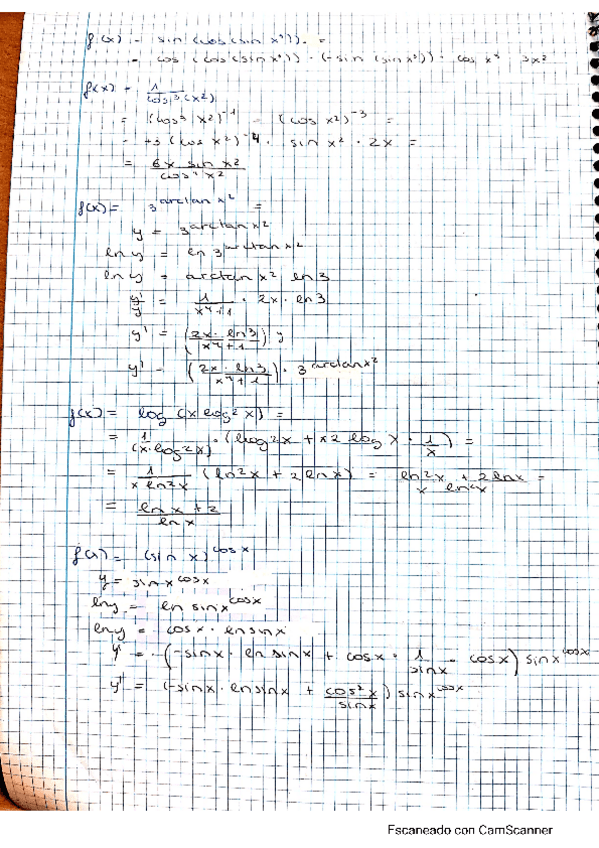 f(x) = sin (cos (sin x³)) =
= cos (cos (sin x³)) · (-sin (sin x³)) · cos x³ 3x²
f(x) = 1/cos³(x²)
= (cos³ x²)⁻¹ = (cos x²)⁻³ =
= +3 (cos x²)⁻⁴ · sin x² · 2x =
= 6x sin x²/cos⁴ x²
f(x) = 3^arctan x² =
y = 3^arctan x²
ln y = ln 3^arctan x²
ln y = arctan x² ln 3
y'/y = 1/x⁴+1 · 2x · ln 3
y' = (2x · ln 3/x⁴+1) y
y' = (2x · ln 3/x⁴+1) · 3^arctan x²
f(x) = log (x log² x) =
= 1/(x · log² x) · (log² x + x 2 log x · 1/x) =
= 1/x ln² x (ln² x + 2 ln x) = ln² x + 2 ln x/x ln² x =
= ln x + 2/ln x
f(x) = (sin x)^cos x
y = sin x^cos x
ln y = ln sin x^cos x
ln y = cos x · ln sin x
y' = (-sin x · ln sin x + cos x · 1/sin x · cos x) sin x^cos x
y' = (-sin x · ln sin x + cos² x/sin x) sin x^cos x
Escaneado con CamScanner